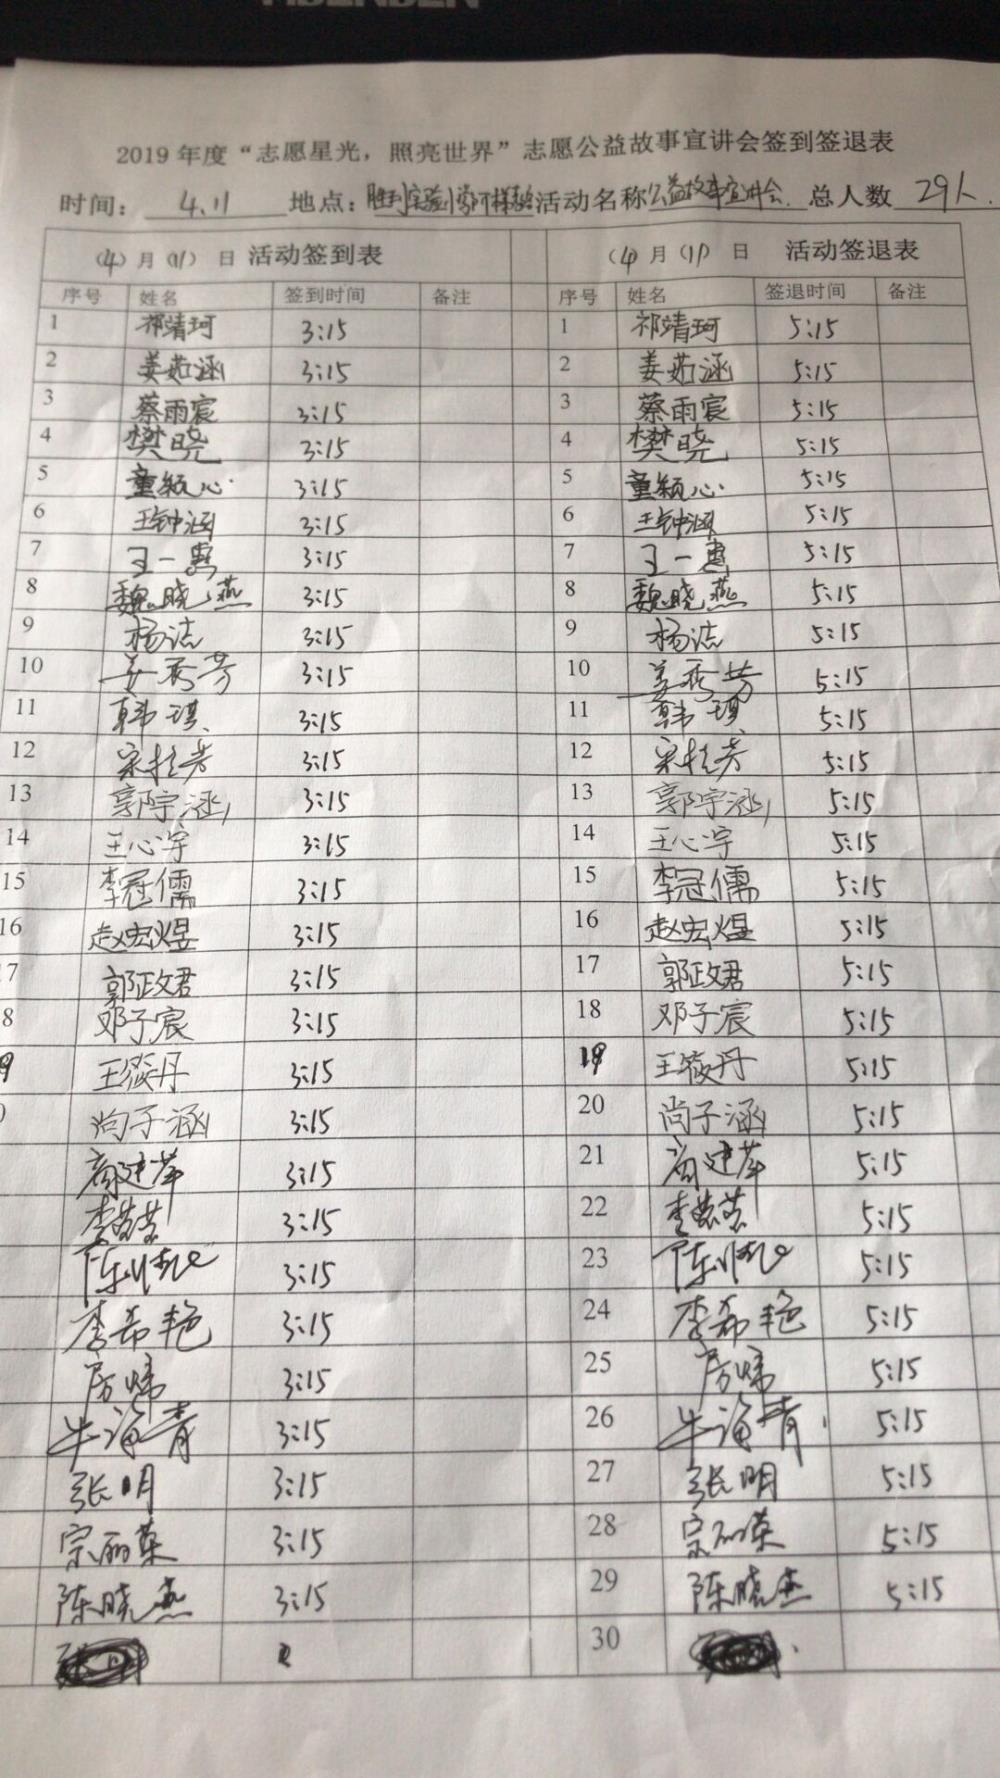 2019年度“志愿星光，照亮世界”志愿公益故事宣讲会签到签退表
时间： 4.11 地点： 胜利实验小学 活动名称 公益故事宣讲会. 总人数 29人.
(4)月(11)日 活动签到表 (4)月(11)日 活动签退表
序号 姓名 签到时间 备注 序号 姓名 签退时间 备注
1 祁靖珂 3:15 1 祁靖珂 5:15
2 姜茹涵 3:15 2 姜茹涵 5:15
3 蔡雨宸 3:15 3 蔡雨宸 5:15
4 樊晓 3:15 4 樊晓 5:15
5 董颖心 3:15 5 董颖心 5:15
6 王钟涵 3:15 6 王钟涵 5:15
7 王一惠 3:15 7 王一惠 5:15
8 魏晓燕 3:15 8 魏晓燕 5:15
9 杨洁 3:15 9 杨洁 5:15
10 姜秀芳 3:15 10 姜秀芳 5:15
11 韩琪 3:15 11 韩琪 5:15
12 宋桂芳 3:15 12 宋桂芳 5:15
13 郭宇涵 3:15 13 郭宇涵 5:15
14 王心宇 3:15 14 王心宇 5:15
15 李冠儒 3:15 15 李冠儒 5:15
16 赵宏煜 3:15 16 赵宏煜 5:15
7 郭政君 3:15 17 郭政君 5:15
8 邓子宸 3:15 18 邓子宸 5:15
9 王筱丹 3:15 19 王筱丹 5:15
尚子涵 3:15 20 尚子涵 5:15
3:15 21 5:15
3:15 22 5:15
3:15 23 5:15
李希艳 3:15 24 李希艳 5:15
3:15 25 5:15
牛海青 3:15 26 牛海青 5:15
张明 3:15 27 张明 5:15
宗丽荣 3:15 28 宗丽荣 5:15
陈晓燕 3:15 29 陈晓燕 5:15
30